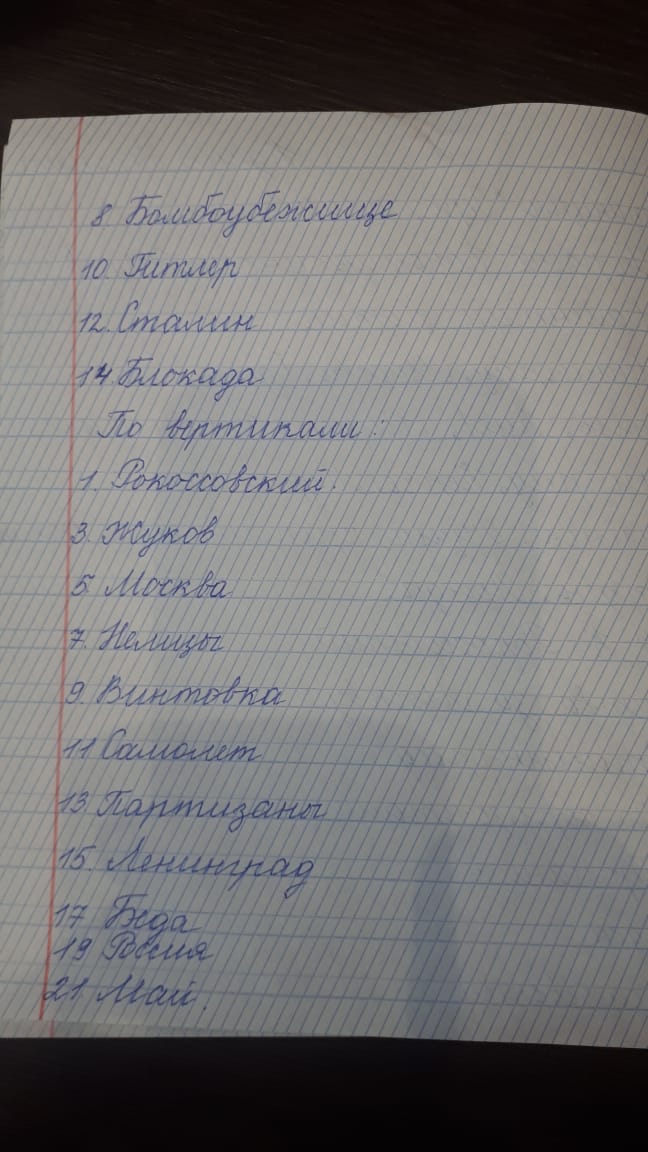 8 Бомбоубежище
10. Гитлер
12. Сталин
14. Блокада
По вертикали:
1. Рокоссовский.
3. Жуков
5. Москва
7. Немцы
9. Винтовка
11 Самолет
13 Партизаны
15. Ленинград
17 Беда
19 Россия
21. Май.